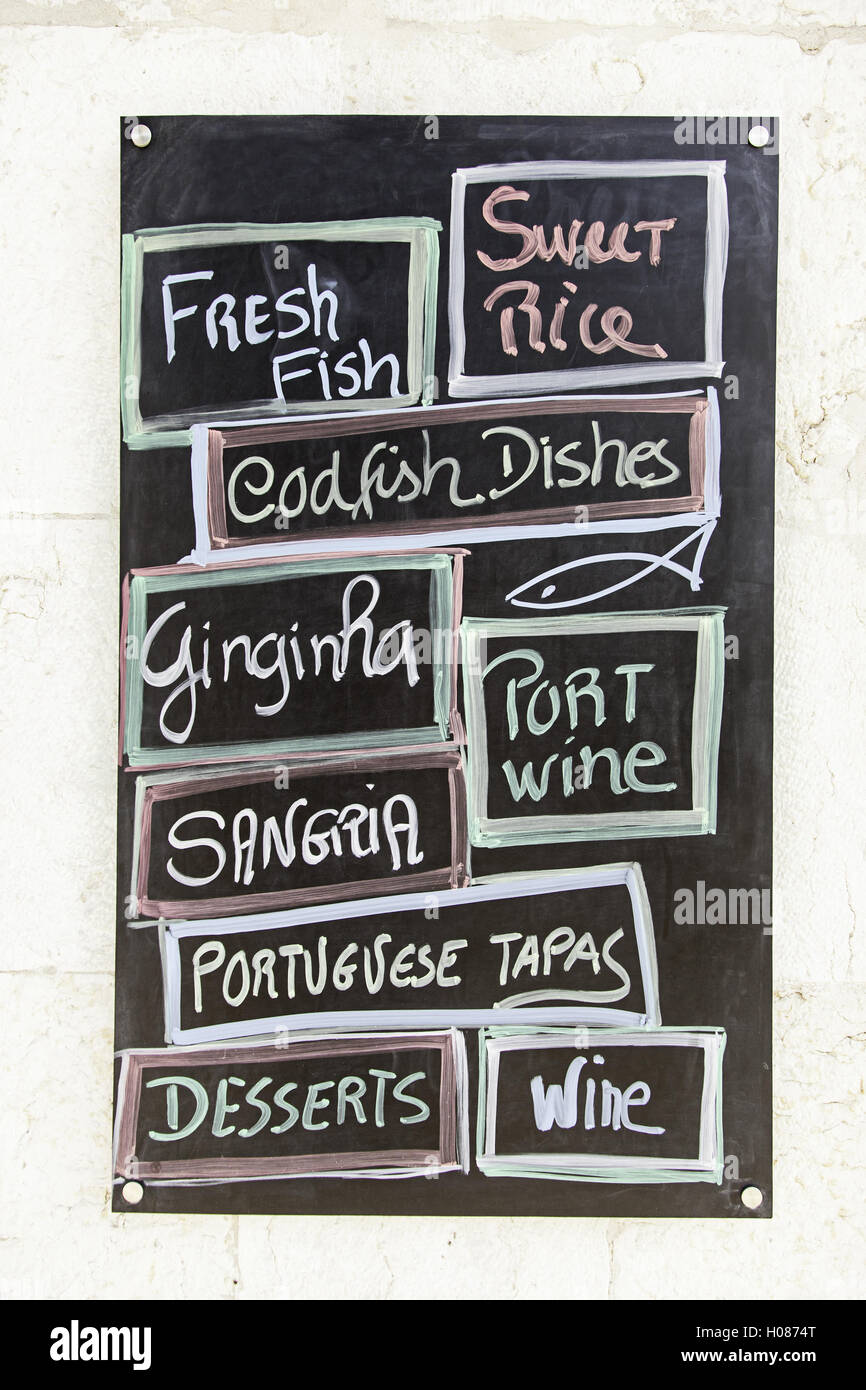 Sweet
Rice
FRESh
Fish
Codfish Dishes
Ginginha
PORT
wine
SANGRIA
PORTUGUESE TAPAS
DESSERTS
Wine
alamy
Image ID: H0874T
www.alamy.com